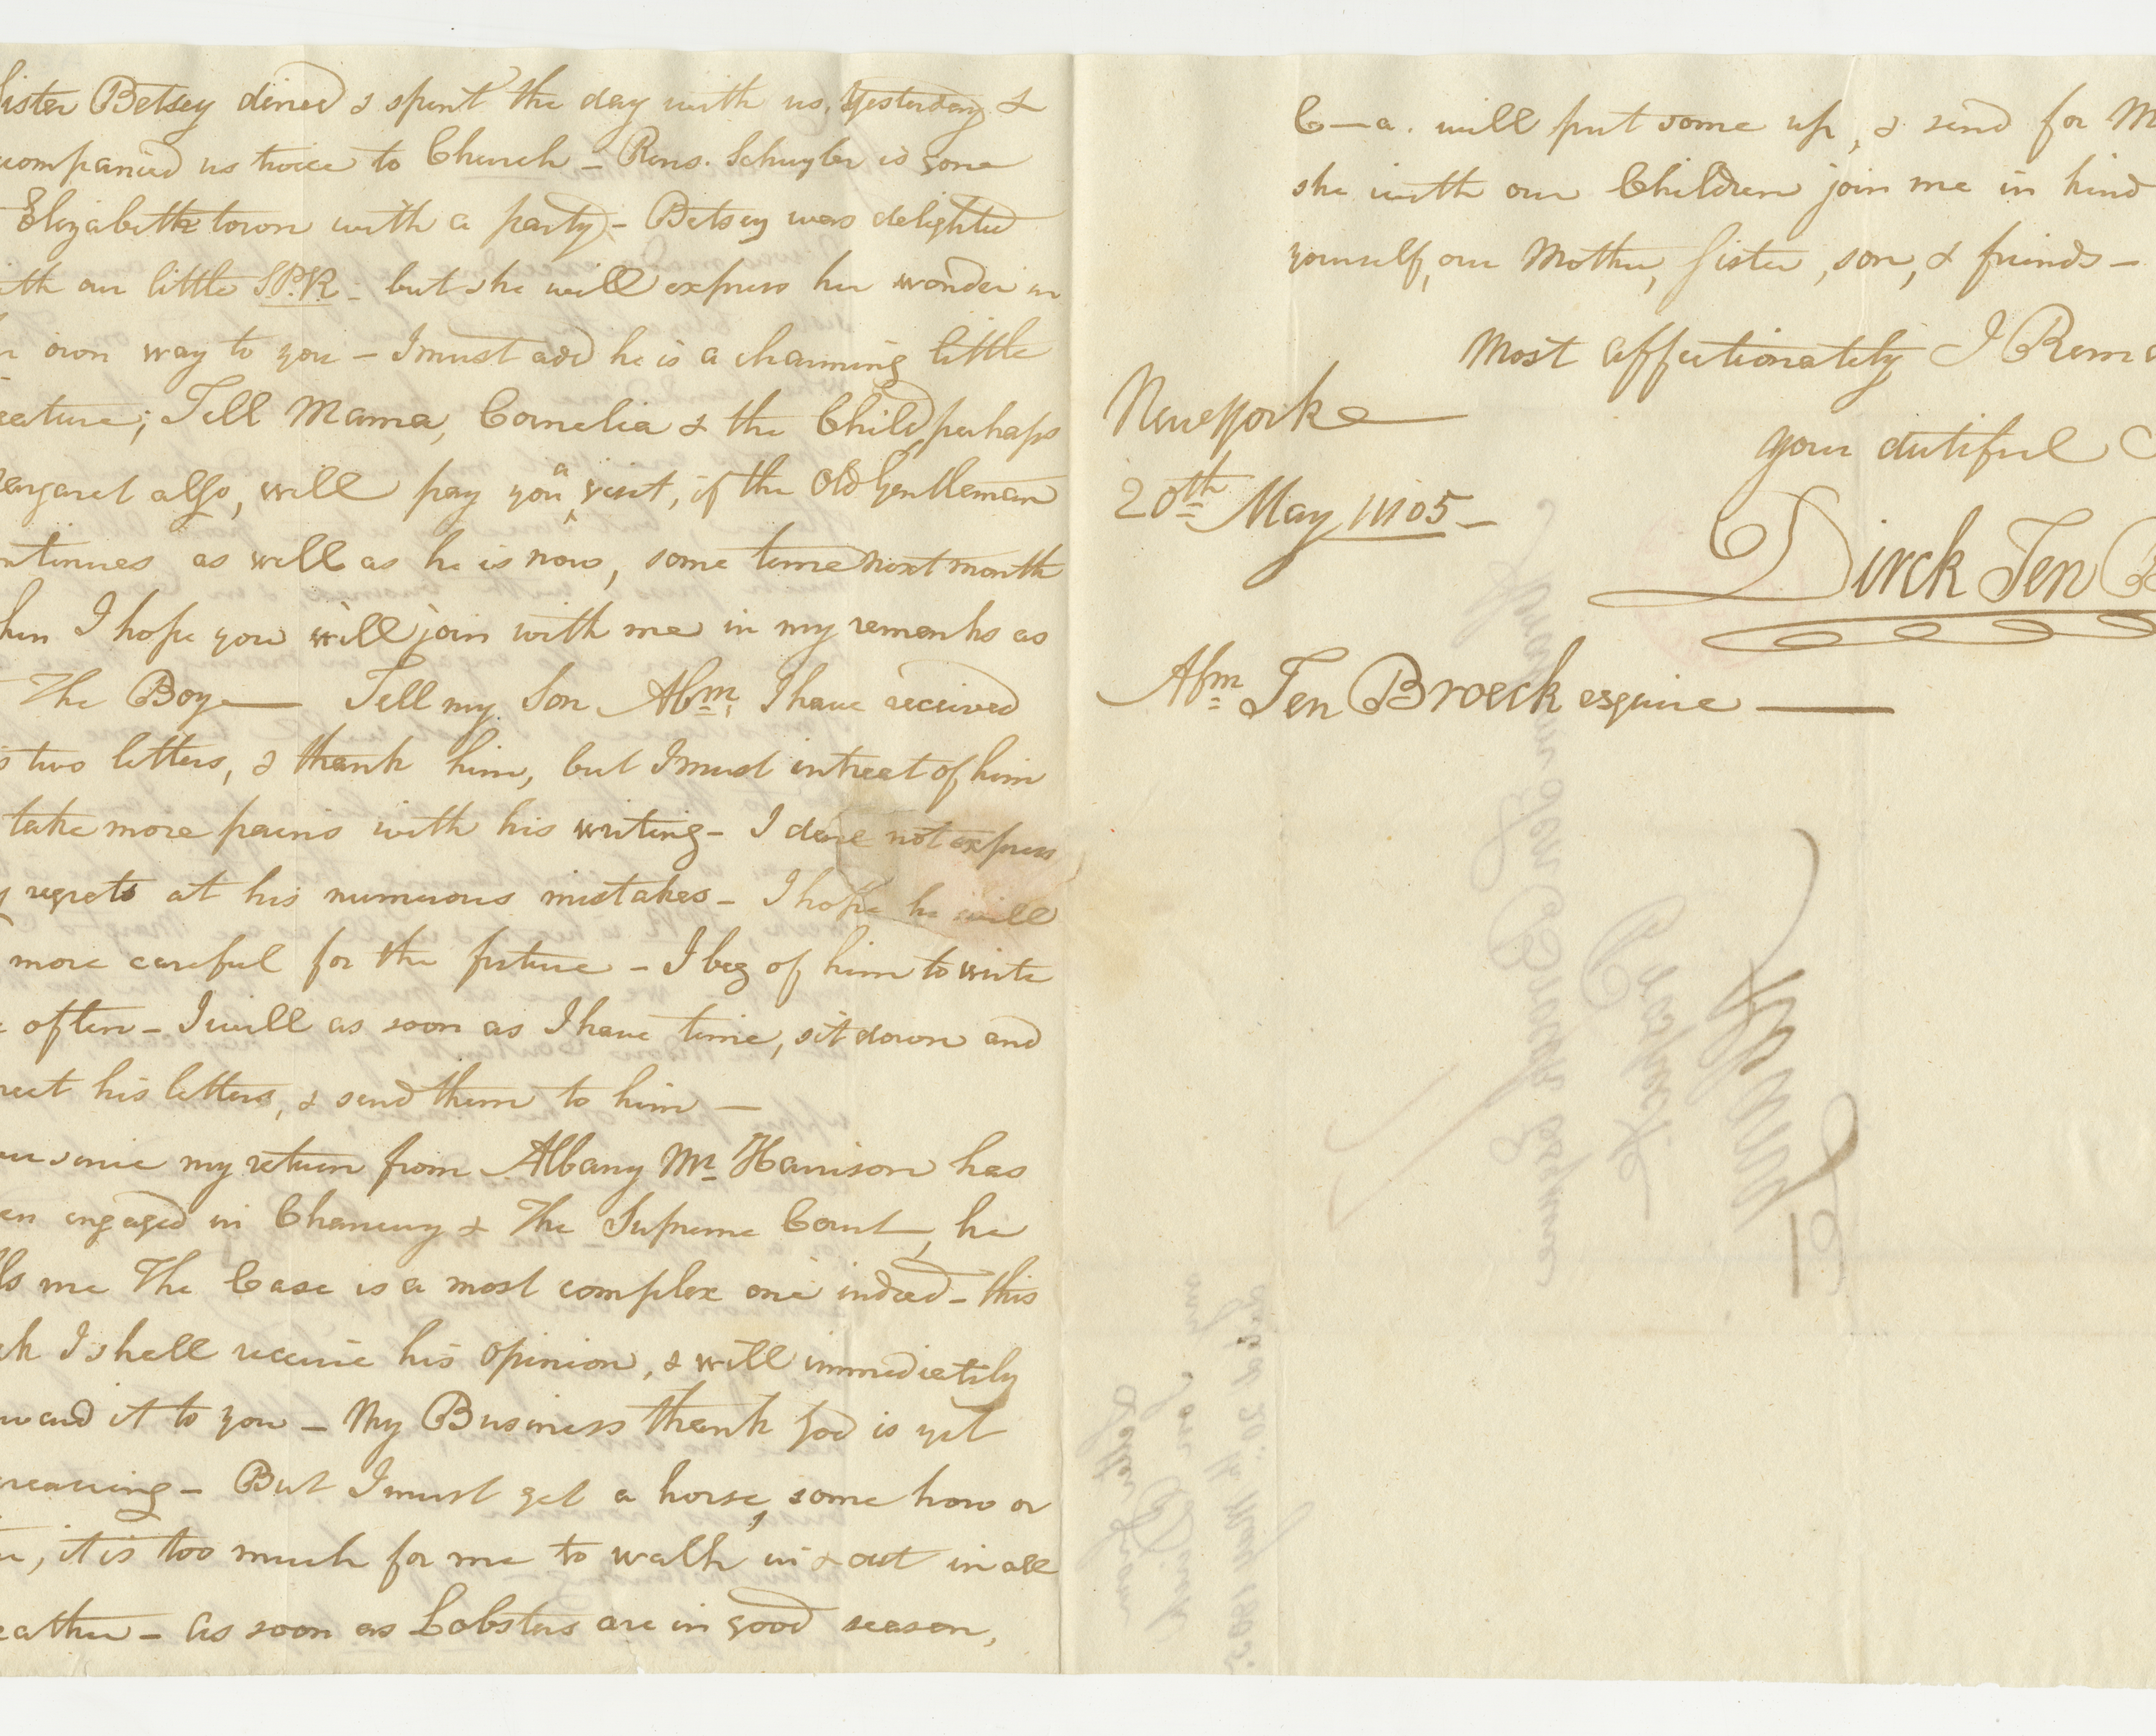 Sister Betsey dined & spent the day with us, Yesterday &
companied us twice to Church – Rens. Schuyler is gone
Elizabethtown with a party – Betsey was delighted
ith our little S.P.R. – but she will express her wonder in
r own way to you – I must add he is a charming little
eature; Tell Mama, Cornelia & the Child perhaps
argaret also, will pay you a visit, if the Old Gentleman
ntinues as well as he is now, some time next month
hen I hope you will join with me in my remarks as
The Boy — Tell my Son Abm. I have received
s two letters, & thank him, but I must intreat of him
take more pains with his writing – I dare not express
y regrets at his numerous mistakes – I hope he will
more careful for the future – I beg of him to write
e often – I will as soon as I have time, sit down and
rect his letters, & send them to him –
er since my return from Albany Mr. Harrison has
en engaged in Chancery & The Supreme Court, he
lls me The Case is a most complex one indeed – this
ek I shall receive his opinion, & will immedietily
rward it to you – My Business thank God is yet
creasing – But I must get a horse, some how or
r, it is too much for me to walk in & out in all
eather – as soon as Lobsters are in good season,
C–a. will put some up, & send for M
she with our Children join me in kind
yourself, our Mother, Sister, son, & friends –
Most affectionately I Rema
Newyork
your dutiful
20th May 1805 –
Dirck Ten B
Abm Ten Broeck esquire —